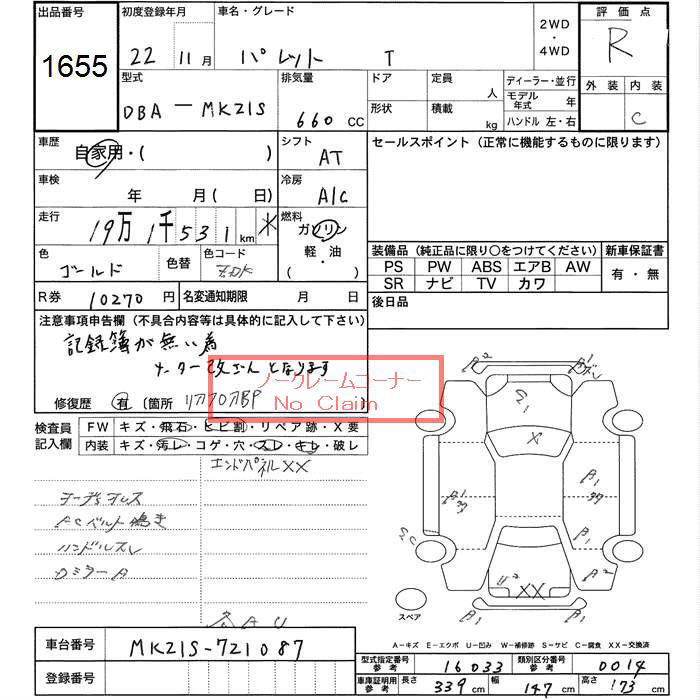 出品番号
1655
初度登録年月
22 11月
車名・グレード
パレット T
2WD
・
4WD
評価点
R
外装 内装
C
型式
DBA-MK21S
排気量
660 CC
ドア
形状
定員 人
積載 kg
ディーラー・並行
モデル年式 年
ハンドル 左・右
車歴
自家用・( )
シフト
AT
セールスポイント (正常に機能するものに限ります)
車検
年 月( 日)
冷房
A/C
走行
19万1千531km *
燃料
ガソリン
軽・油
( )
色
ゴールド
色替
色コード
装備品 (純正品に限り○をつけてください)
新車保証書
PS PW ABS エアB AW
SR ナビ TV カワ
有・無
R券 10270円
名変通知期限 月 日
後日品
注意事項申告欄 (不具合内容等は具体的に記入して下さい)
記録簿が無い為
メーター改ざんとなります
ノークレームコーナー
No Claim
修復歴 有 (箇所
検査員記入欄
FW キズ・飛石・ヒビ割・リペア跡・X要
内装 キズ・汚レ・コゲ・穴・スレ・キレ・破レ
エンドパネルXX
ハンドルスレ
スペア
A-キズ E-エクボ U-凹み W-補修跡 S-サビ C-腐食 XX-交換済
車台番号
MK21S-721087
登録番号
型式指定番号 参考
16033
類別区分番号 参考
0014
車庫証明用 参考
長さ 339cm
幅 147cm
高さ 173cm